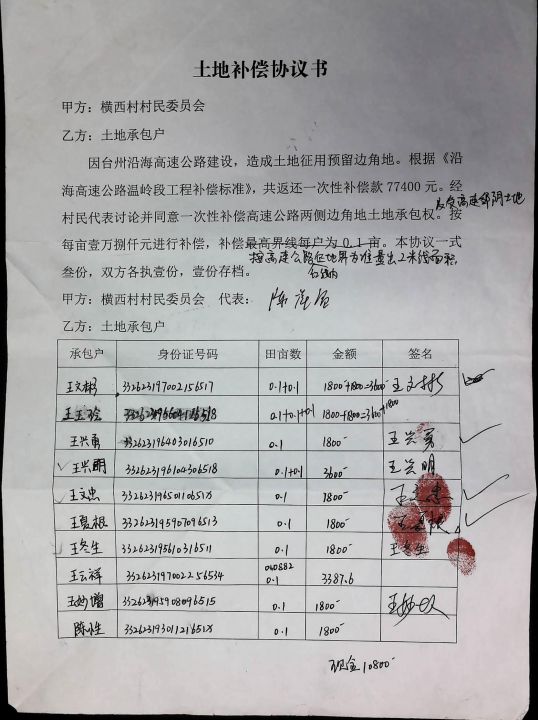 土地补偿协议书
甲方：横西村村民委员会
乙方：土地承包户
因台州沿海高速公路建设，造成土地征用预留边角地。根据《沿
海高速公路温岭段工程补偿标准》，共返还一次性补偿款77400元。经
高速 土地
村民代表讨论并同意一次性补偿高速公路两侧边角地土地承包权。按
每亩壹万捌仟元进行补偿，补偿最高界线每户为0.1亩。本协议一式
按高速公路征地界为准量出2米线面积
叁份，双方各执壹份，壹份存档。
甲方：横西村村民委员会 代表：
乙方：土地承包户
承包户 身份证号码 田亩数 金额 签名
王文彬 332623197002156517 0.1+0.1 1800+1800=3600 王文彬
0.1+0.1+0.1 1800+1800=3600+1800
王兴勇 332623196403016510 0.1 1800 王兴勇
王兴明 332623196104306518 0.1+0.1 3600 王兴明
王文忠 33262319650110651X 0.1 1800
王夏根 332623195907096513 0.1 1800
王冬生 332623195610316511 0.1 1800 王冬生
王云祥 332623197002256534 0.1 3387.6
332623195908096515 0.1 1800
33262319301121651X 0.1 1800
现金10800